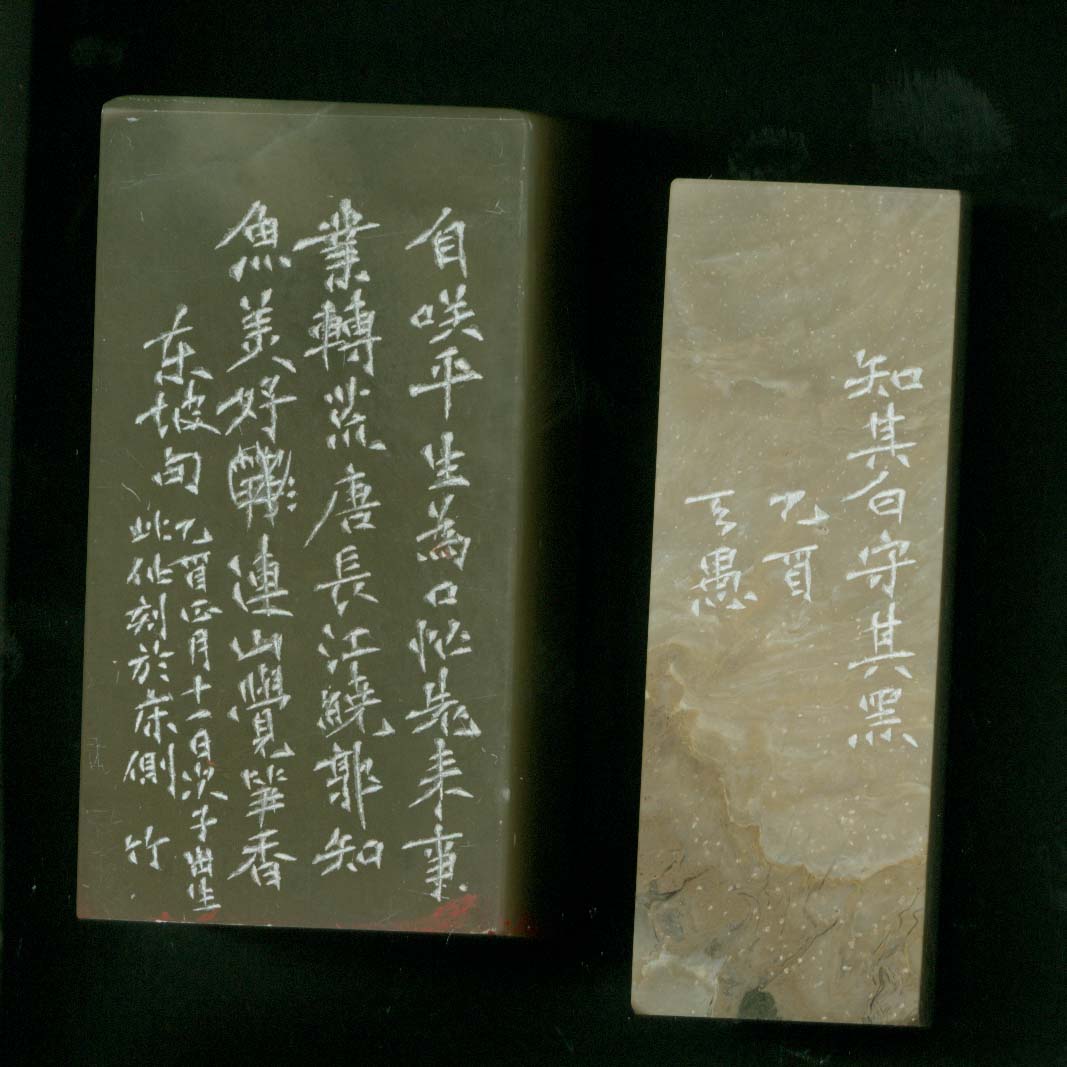 自咲平生為口忙老来事
業轉荒唐長江繞郭知
魚美好連山覺笋香
东坡句
乙酉正月十一日次子出生
此作刻於床側 竹
知其白守其黑
乙酉
愚